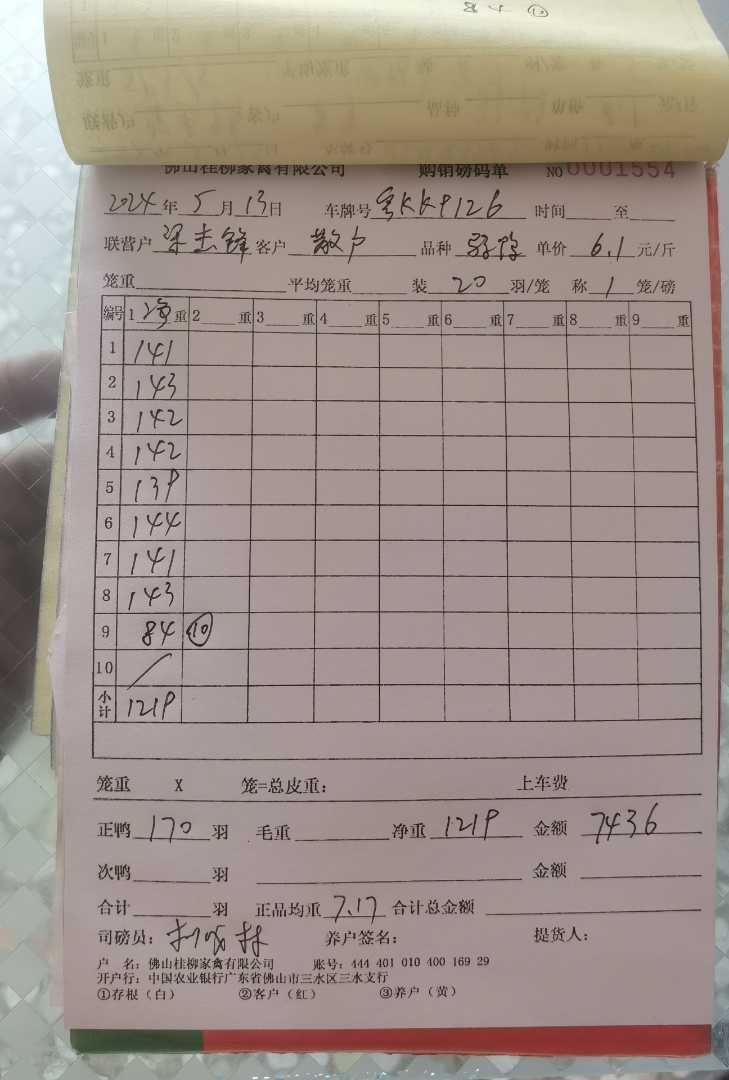 佛山桂柳家禽有限公司 购销磅码单 NO 0001554
2024年5月13日 车牌号 粤KK9126 时间 至
联营户 梁志锋 客户 散户 品种 单价 6.1 元/斤
笼重 平均笼重 装 20 羽/笼 称 1 笼/磅
编号 1 净 重 2 重 3 重 4 重 5 重 6 重 7 重 8 重 9 重
1 141
2 143
3 142
4 142
5 139
6 144
7 141
8 143
9 84 ⑩
10 /
小计 1219
笼重 X 笼=总皮重: 上车费
正鸭 170 羽 毛重 净重 1219 金额 7436
次鸭 羽 金额
合计 羽 正品均重 7.17 合计总金额
司磅员: 养户签名: 提货人:
户 名: 佛山桂柳家禽有限公司 账号: 444 401 010 400 169 29
开户行: 中国农业银行广东省佛山市三水区三水支行
①存根(白) ②客户(红) ③养户(黄)